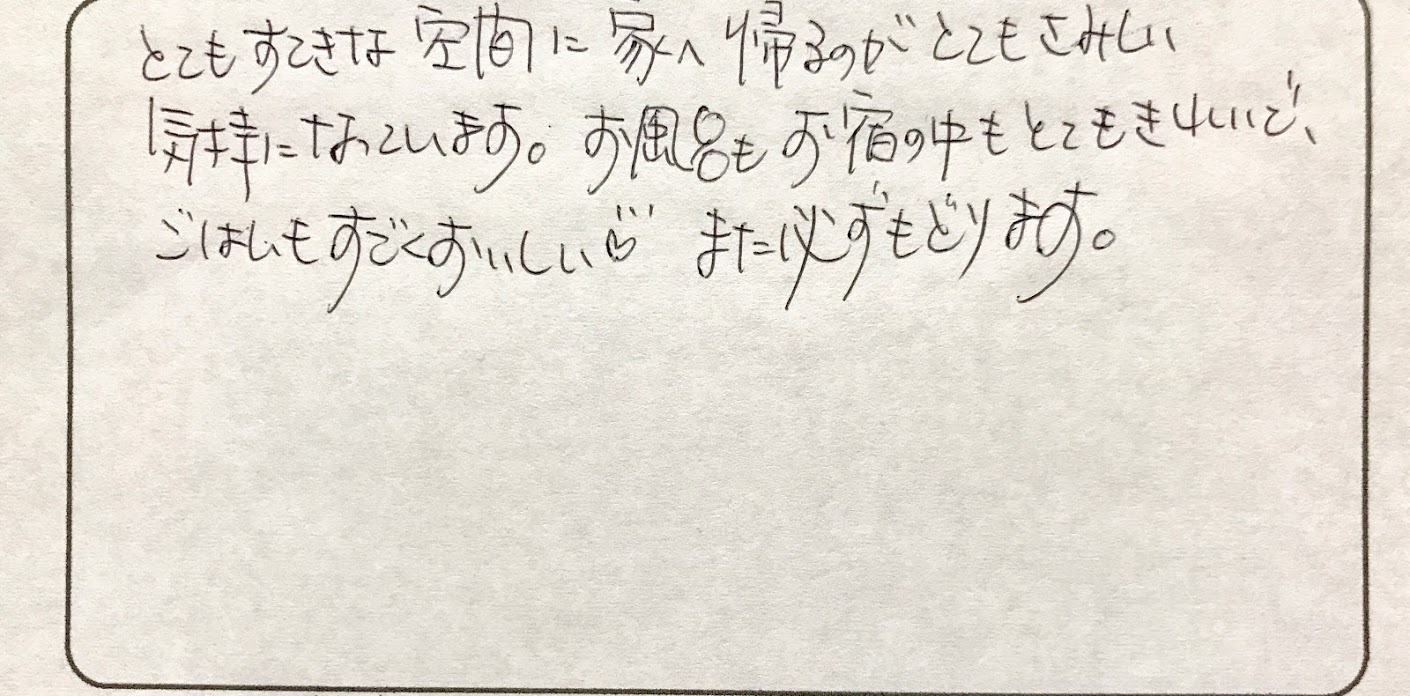 とてもすてきな空間に家へ帰るのがとてもさみしい
気持になっています。お風呂もお宿の中もとてもきれいで、
ごはんもすごくおいしい♡ また必ずもどります。